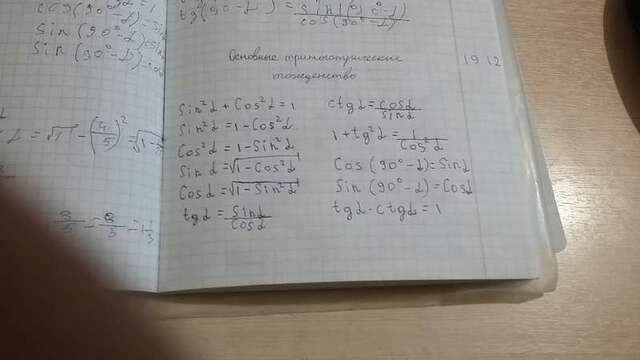 cos(90°-α)=sin
sin(90°-α)
sin(90°-α)=cos
tg(90-α)=sin(90°-α)/cos(90°-α)
α=√1-(4/5)²=√1-
Основные тригонометрические
тожденство
19 12
sin²α+cos²α=1
sin²α=1-cos²α
cos²α=1-sin²α
sinα=√1-cos²α
cosα=√1-sin²α
tgα=sinα/cosα
ctgα=cosα/sinα
1+tg²α=1/cos²α
cos(90°-α)=sinα
sin(90°-α)=cosα
tgα·ctgα=1